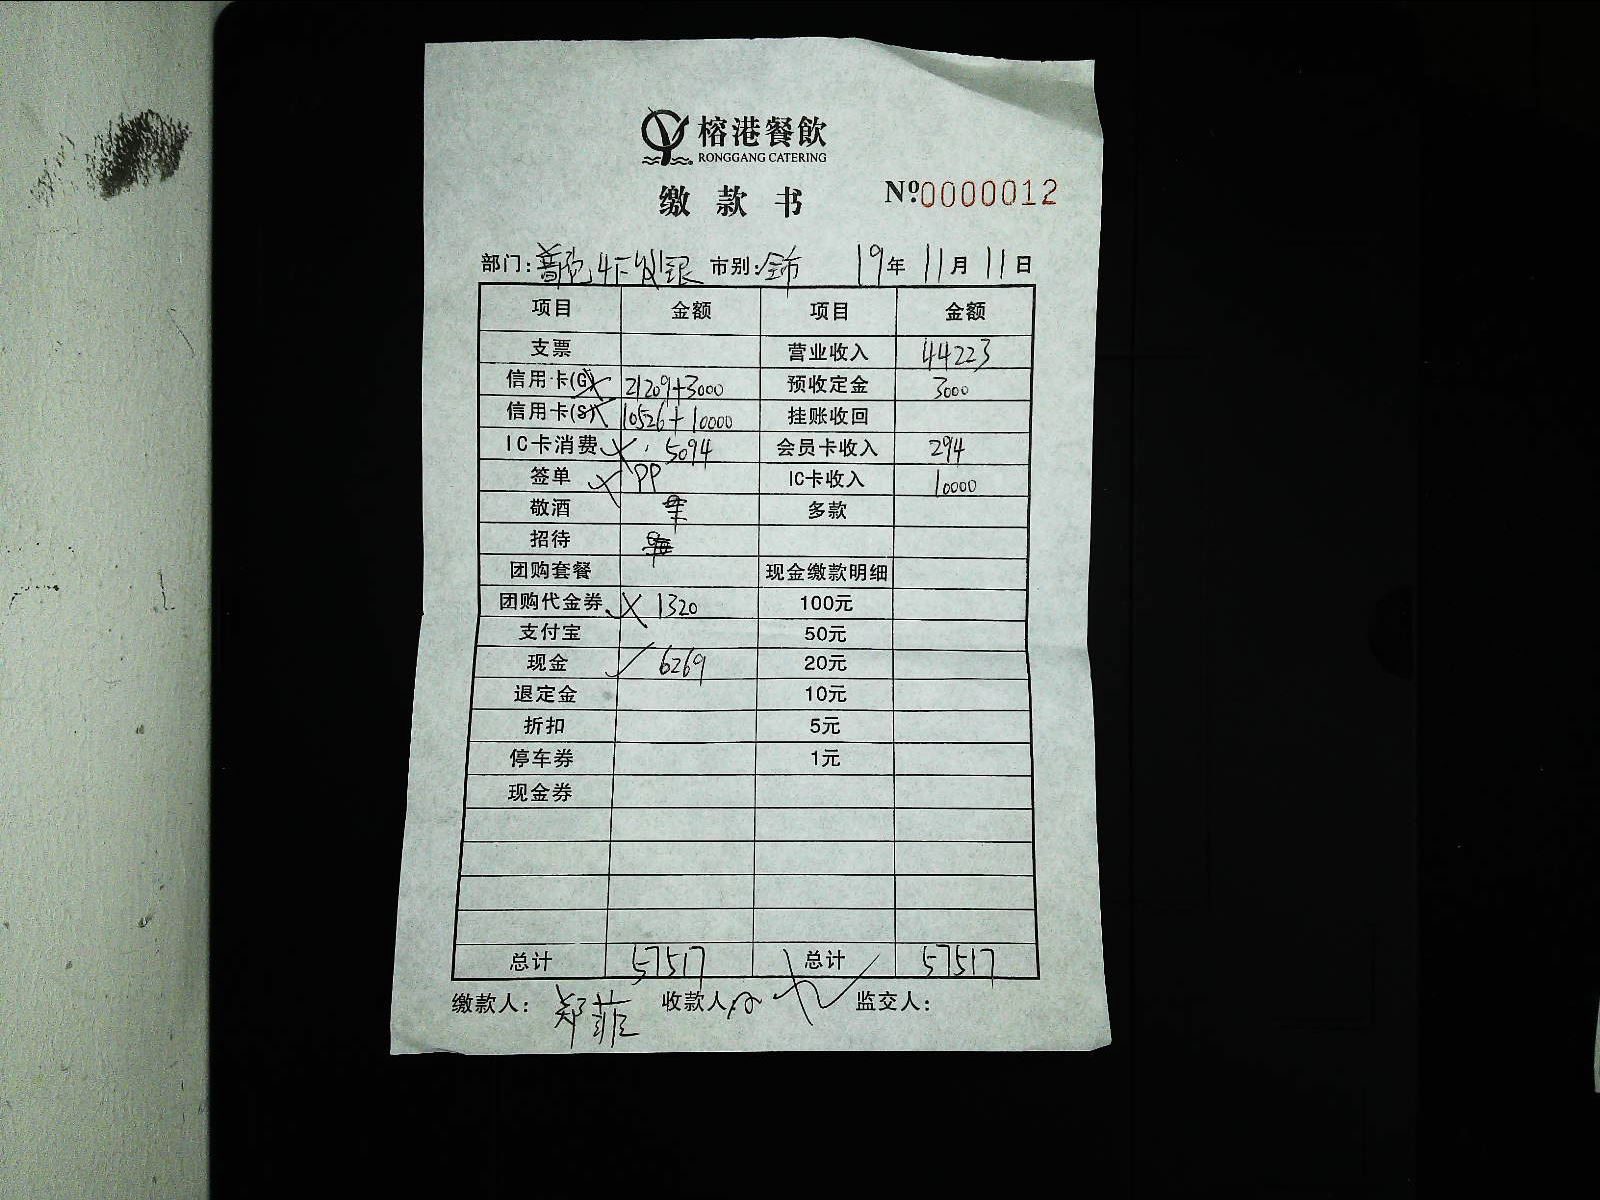 榕港餐飲
RONGGANG CATERING
缴款书 Nº:0000012
部门: 市别:全市 19年11月11日
项目 金额 项目 金额
支票 营业收入 44223
信用卡(G) 21209+3000 预收定金 3000
信用卡(S) 10526+10000 挂账收回
IC卡消费 5094 会员卡收入 294
签单 PP IC卡收入 10000
敬酒 多款
招待
团购套餐 现金缴款明细
团购代金券 1320 100元
支付宝 50元
现金 ✓ 6269 20元
退定金 10元
折扣 5元
停车券 1元
现金券
总计 57517 总计 57517
缴款人: 郑菲 收款人 监交人: